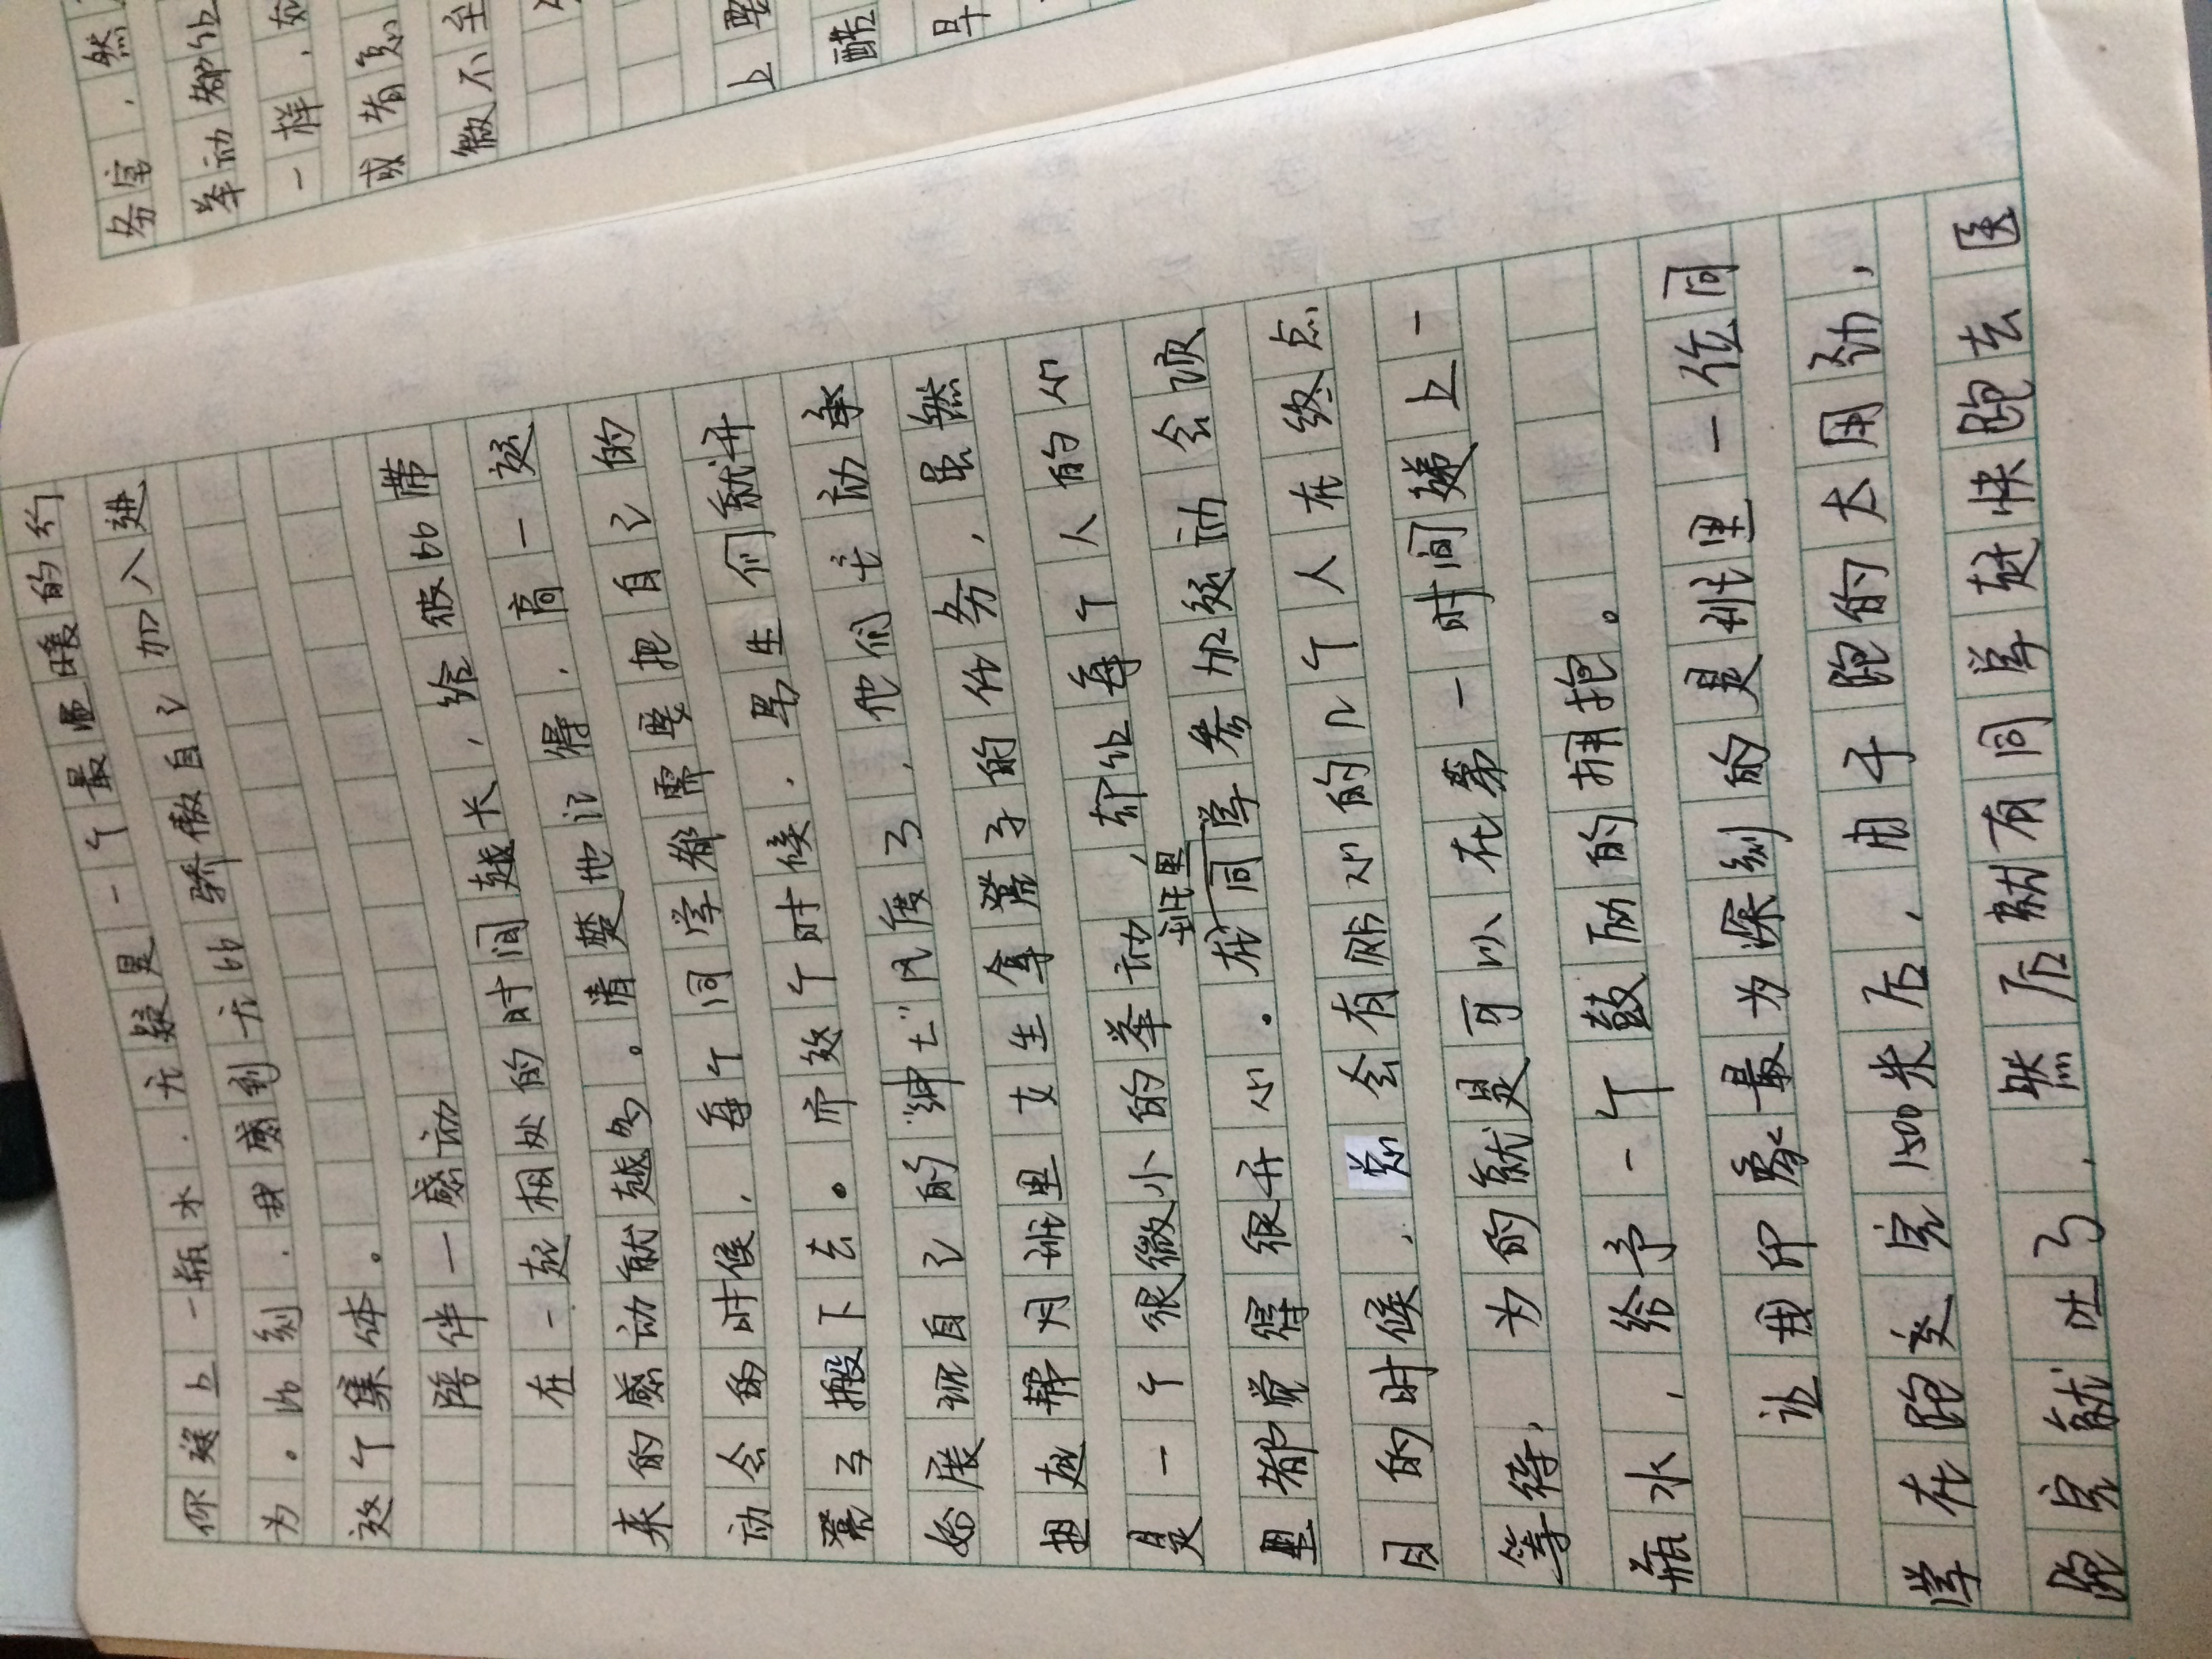 你递上一瓶水，无疑是一个最温暖的行
为。此刻，我感到无比骄傲自己加入进
这个集体。
陪伴—感动
在一起相处的时间越长，给彼此带
来的感动就越多。清楚地记得，高一运
动会的时候，每个同学都需要把自己的
凳子搬下去。而这个时候，男生们就开
始展现自己的“绅士”风度了，他们主动承
担起帮对班里女生拿凳子的任务，虽然
是一个很微小的举动，却让每个人的心
里都觉得很开心。在班里同学参加运动会项
目的时候，总会有贴心的几个人在终点
等待，为的就是可以在第一时间递上一
瓶水，给予一个鼓励的拥抱。
让我印象最为深刻的是班里一位同
学在跑完1500米后，由于跑的太用劲，
跑完就吐了，然后就有同学赶快跑去医
务室，然
举动都让
一样，
或者
微不至
上
酷
早